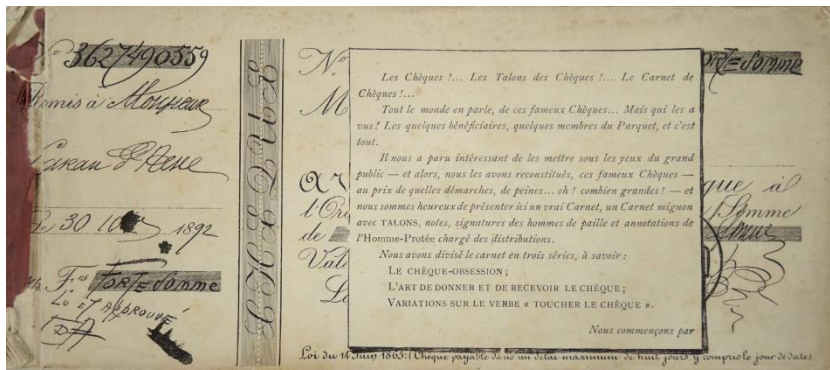 No 3627490559
Remis à Monsieur
Le 30 1892
Fcs FORTE SOMME
LU ET APPROUVÉ
CHÈQUE
No
FORTE SOMME
Les Chèques !... Les Talons des Chèques !... Le Carnet de
Chèques !...
Tout le monde en parle, de ces fameux Chèques... Mais qui les a
vus? Les quelques bénéficiaires, quelques membres du Parquet, et c'est
tout.
Il nous a paru intéressant de les mettre sous les yeux du grand
public — et alors, nous les avons reconstitués, ces fameux Chèques —
au prix de quelles démarches, de peines... oh ! combien grandes ! — et
nous sommes heureux de présenter ici un vrai Carnet, un Carnet mignon
avec TALONS, notes, signatures des hommes de paille et annotations de
l'Homme-Protée chargé des distributions.
Nous avons divisé le carnet en trois séries, à savoir :
LE CHÈQUE-OBSESSION ;
L'ART DE DONNER ET DE RECEVOIR LE CHÈQUE ;
VARIATIONS SUR LE VERBE « TOUCHER LE CHÈQUE ».
Nous commençons par
que à
Somme
de
Loi du 14 Juin 1865: (Chèque payable dans un délai maximum de huit jours y compris le jour de date)